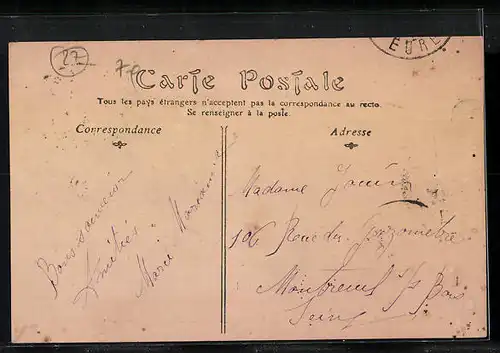 27
EURE
Carte Postale
Tous les pays étrangers n'acceptent pas la correspondance au recto.
Se renseigner à la poste.
Correspondance
Adresse
Bons souvenirs
Amitiés
Marie
Madame
106 Rue du Gazomètre
Montreuil s/s Bois
Seine